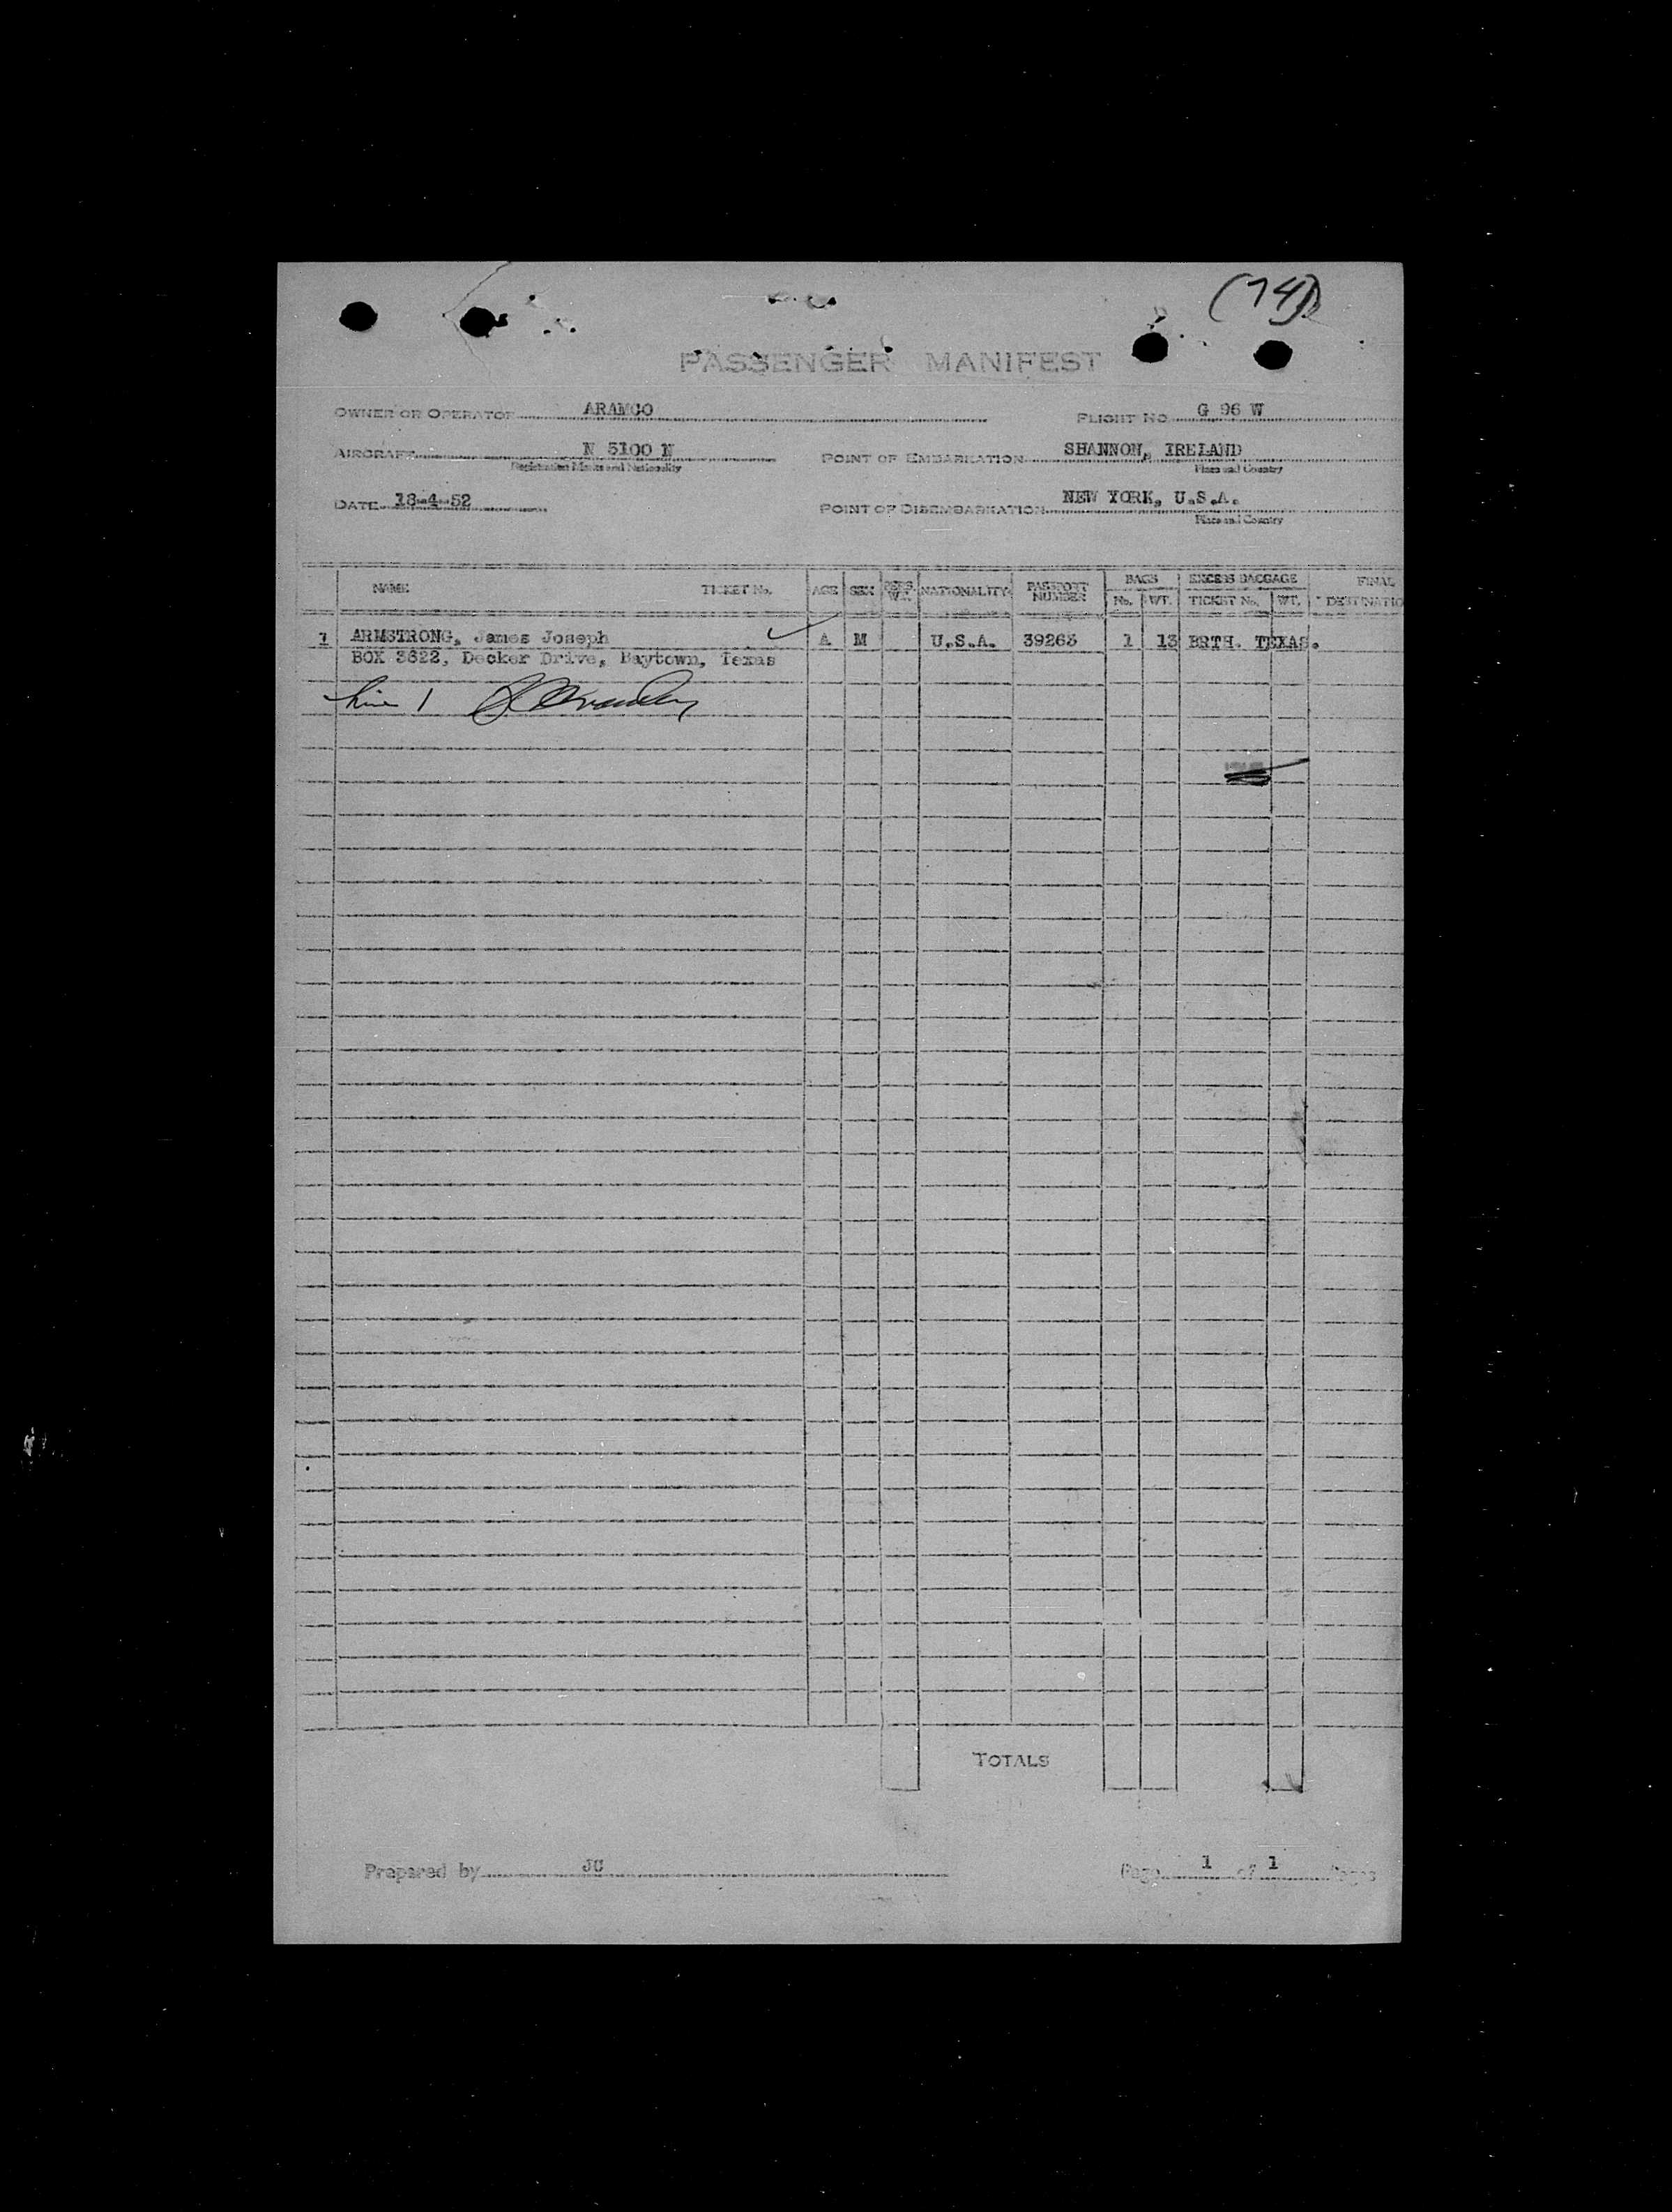 (74)
PASSENGER MANIFEST
OWNER OR OPERATOR ARAMCO FLIGHT NO G 96 W
AIRCRAFT N 5100 N POINT OF EMBARKATION SHANNON, IRELAND
Registration Marks and Nationality Place and Country
DATE 18-4-52 POINT OF DISEMBARKATION NEW YORK, U.S.A.
Place and Country
NAME TICKET No. AGE SEX PERS. WT. NATIONALITY PASSPORT NUMBER BAGS No. WT. EXCESS BAGGAGE TICKET No. WT. FINAL DESTINATIO
1 ARMSTRONG, James Joseph A M U.S.A. 39263 1 13 BRTH. TEXAS.
BOX 3622, Decker Drive, Baytown, Texas
Line 1
TOTALS
Prepared by JC Page 1 of 1 Pages